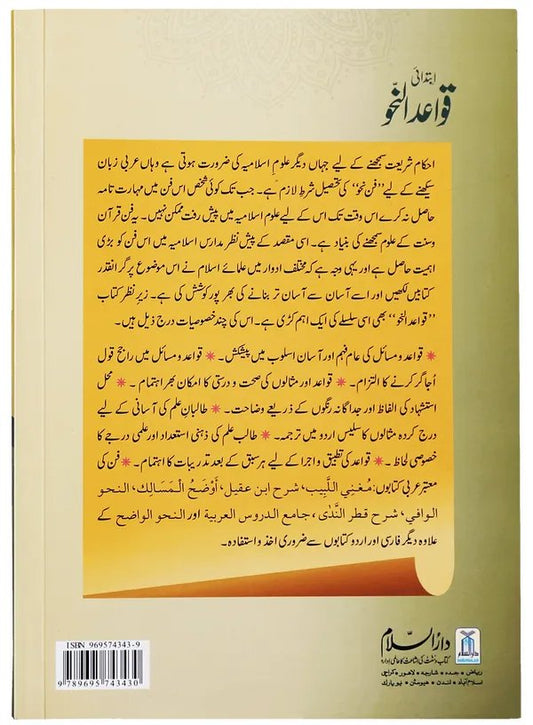 ابتدائی
قواعد النّحو
احکام شریعت سمجھنے کے لیے جہاں دیگر علومِ اسلامیہ کی ضرورت ہوتی ہے وہاں عربی زبان
سیکھنے کے لیے ”فن نحو“ کی تحصیل شرطِ لازم ہے۔ جب تک کوئی شخص اس فن میں مہارت تامہ
حاصل نہ کرے اس وقت تک اس کے لیے علوم اسلامیہ میں پیش رفت ممکن نہیں۔ یہ فن قرآن
وسنت کے علوم سمجھنے کی بنیاد ہے۔ اسی مقصد کے پیش نظر مدارس اسلامیہ میں اس فن کو بڑی
اہمیت حاصل ہے اور یہی وجہ ہے کہ مختلف ادوار میں علمائے اسلام نے اس موضوع پر گرانقدر
کتابیں لکھیں اور اسے آسان سے آسان تر بنانے کی بھرپور کوشش کی ہے۔ زیرِ نظر کتاب
”قواعد النحو“ بھی اسی سلسلے کی ایک اہم کڑی ہے۔ اس کی چند خصوصیات درج ذیل ہیں۔
✷ قواعد و مسائل کی عام فہم اور آسان اسلوب میں پیشکش۔ ✷ قواعد و مسائل میں راجح قول
اُجاگر کرنے کا التزام۔ ✷ قواعد اور مثالوں کی صحت و درستی کا امکان بھر اہتمام۔ ✷ محل
استشہاد کی الفاظ اور جداگانہ رنگوں کے ذریعے وضاحت۔ ✷ طالبانِ علم کی آسانی کے لیے
درج کردہ مثالوں کا سلیس اردو میں ترجمہ۔ ✷ طالب علم کی ذہنی استعداد اور علمی درجے کا
خصوصی لحاظ۔ ✷ قواعد کی تطبیق و اجرا کے لیے ہر سبق کے بعد تدریبات کا اہتمام۔ ✷ فن کی
معتبر عربی کتابوں: مُغنِي اللَّبِيب، شرح ابن عقيل، أَوْضَحُ الْمَسَالِك، النحو
الوافي، شرح قطر النَّدٰى، جامع الدروس العربية اور النحو الواضح کے
علاوہ دیگر فارسی اور اردو کتابوں سے ضروری اخذ و استفادہ۔
ISBN 969574343-9
9 789695 743430
دارُالسّلام
کتاب و سنت کی اشاعت کا عالمی ادارہ
ریاض • جدہ • شارجہ • لاہور • کراچی
اسلام آباد • لندن • ہیوسٹن • نیویارک